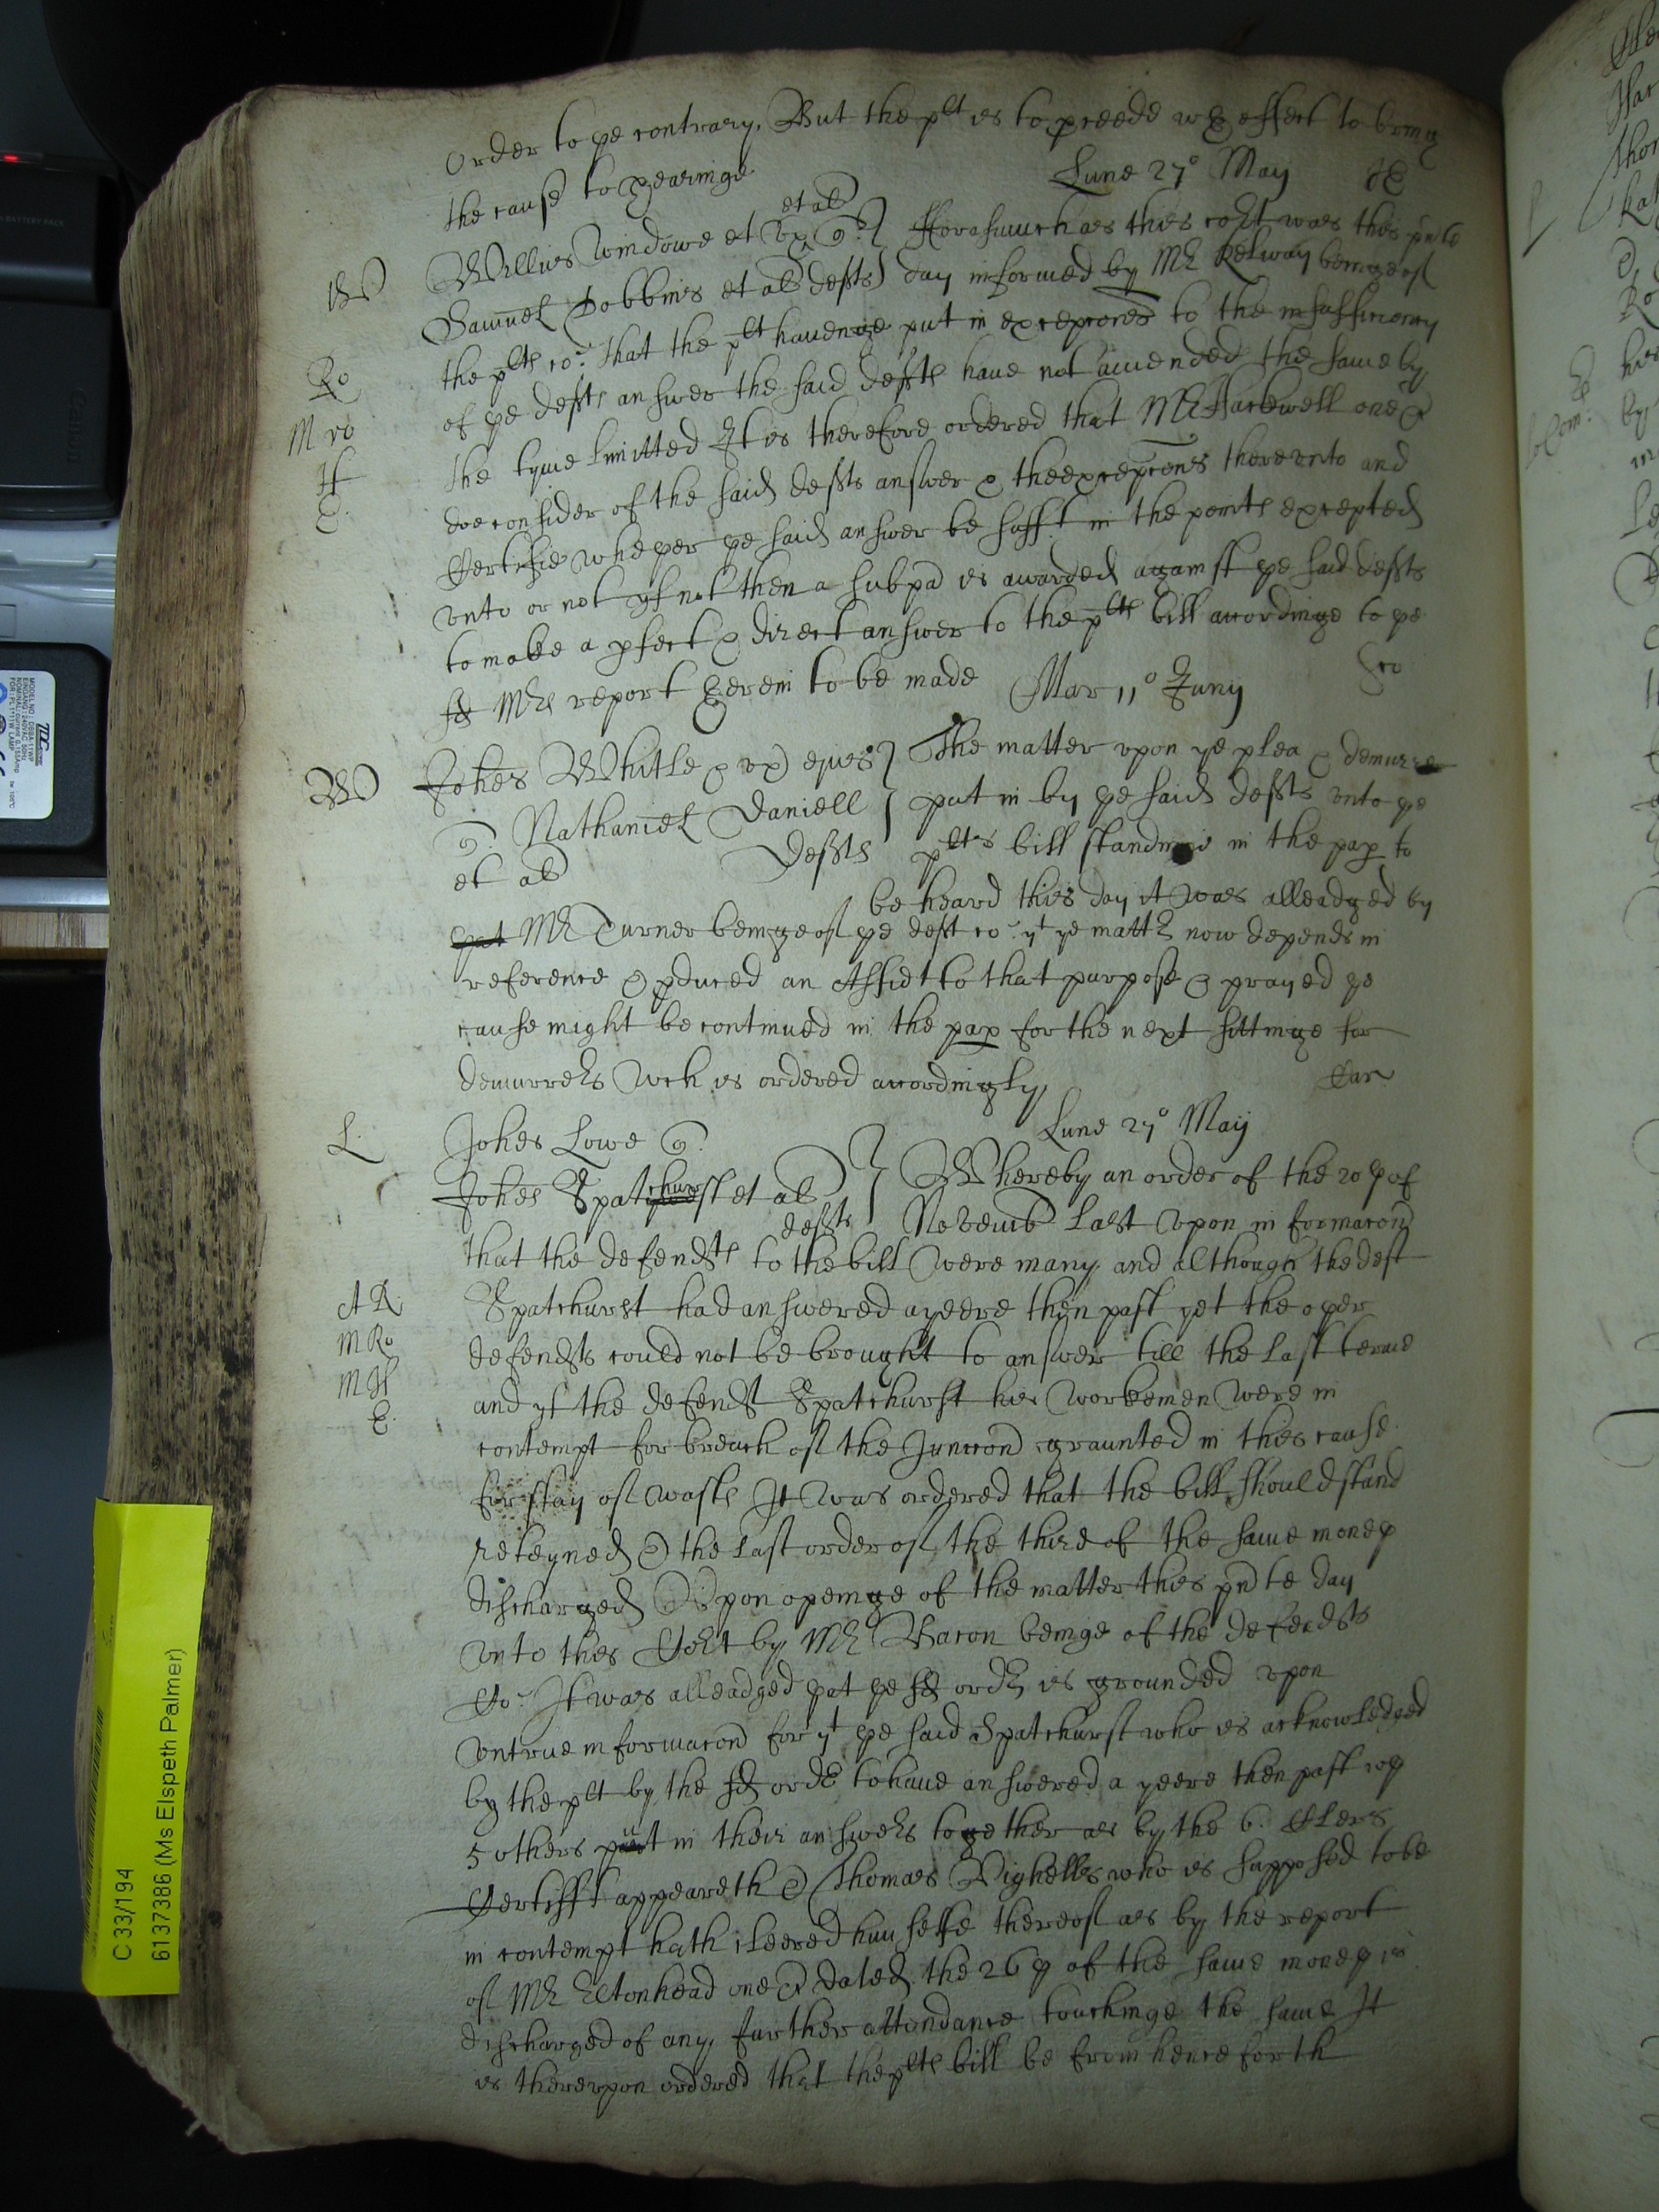 Order to ye contrary. But the plt is to pceede wth effect to bring
the cause to hearinge
Lune 27° May
et al
Willius Windowe et ux qr } Fforasmuch as this cort was this pnte
Samuel Dobbins et al defts } day informed by Mr Kelway beinge of
the plts co: that the plt haveinge put in excepcones to the insufficiency
of ye defts answer the said defts have not amended the same by
the tyme limitted It is therefore ordered that Mr Hackwell one &
doe consider of the said defts answer & the excepcons thereunto and
Certifie whether ye said answer be sufft in the points excepted
unto or not yf not then a subpa is awarded against ye said defts
to make a pfect & direct answer to the plts bill accordinge to ye
sd Mrs report herein to be made
Mar 11° Juny
W
Ro
M ro
H
E.
W
Johes Whitle & ux eius } The matter upon ye plea & demurre
q. Nathaniel Daniell } put in by ye said defts unto ye
et al defts plts bill standinge in the pap to
be heard this day it was alleadged by
yat Mr Turner beinge of ye deft co: yt ye mattr now depends in
reference & pduced an Affidt to that purpose & prayed ye
cause might be continued in the pap for the next sittinge for
demurrers wch is ordered accordingly.
L.
Johes Lowe q.
Lune 27° May
Johes Spatchurst et al } Whereby an order of the 20th of
defts } Novemb last upon informacon
that the defendts to the bill were many and although the deft
A R
M Ro
M H
E.
Spatchurst had answered a yeere then past yet the other
defendts could not be brought to answer till the last terme
and yf the defendt Spatchurst his workemen were in
contempt for breach of the Junccon graunted in this cause
for stay of wasts It was ordered that the bill should stand
reteyned & the last order of the third of the same moneth
discharged Upon openinge of the matter this pnte day
unto this Cort by Mr Bacon beinge of the defendts
Co: It was alleadged yat ye sd ordr is grounded upon
untrue informacon for yt ye said Spatchurst who is acknowledged
by the plt by the sd ordr to have answered a yeere then past wth
5 others put in their answers together as by the 6. Clers
Certifft appeareth & Thomas Nighells who is supposed to be
in contempt hath cleered himselfe thereof as by the report
of Mr Eltonhead one & dated the 26th of the same moneth is
discharged of any further attendance touchinge the same It
is thereupon ordered that the plts bill be from henceforth
C 33/194
6137386 (Ms Elspeth Palmer)